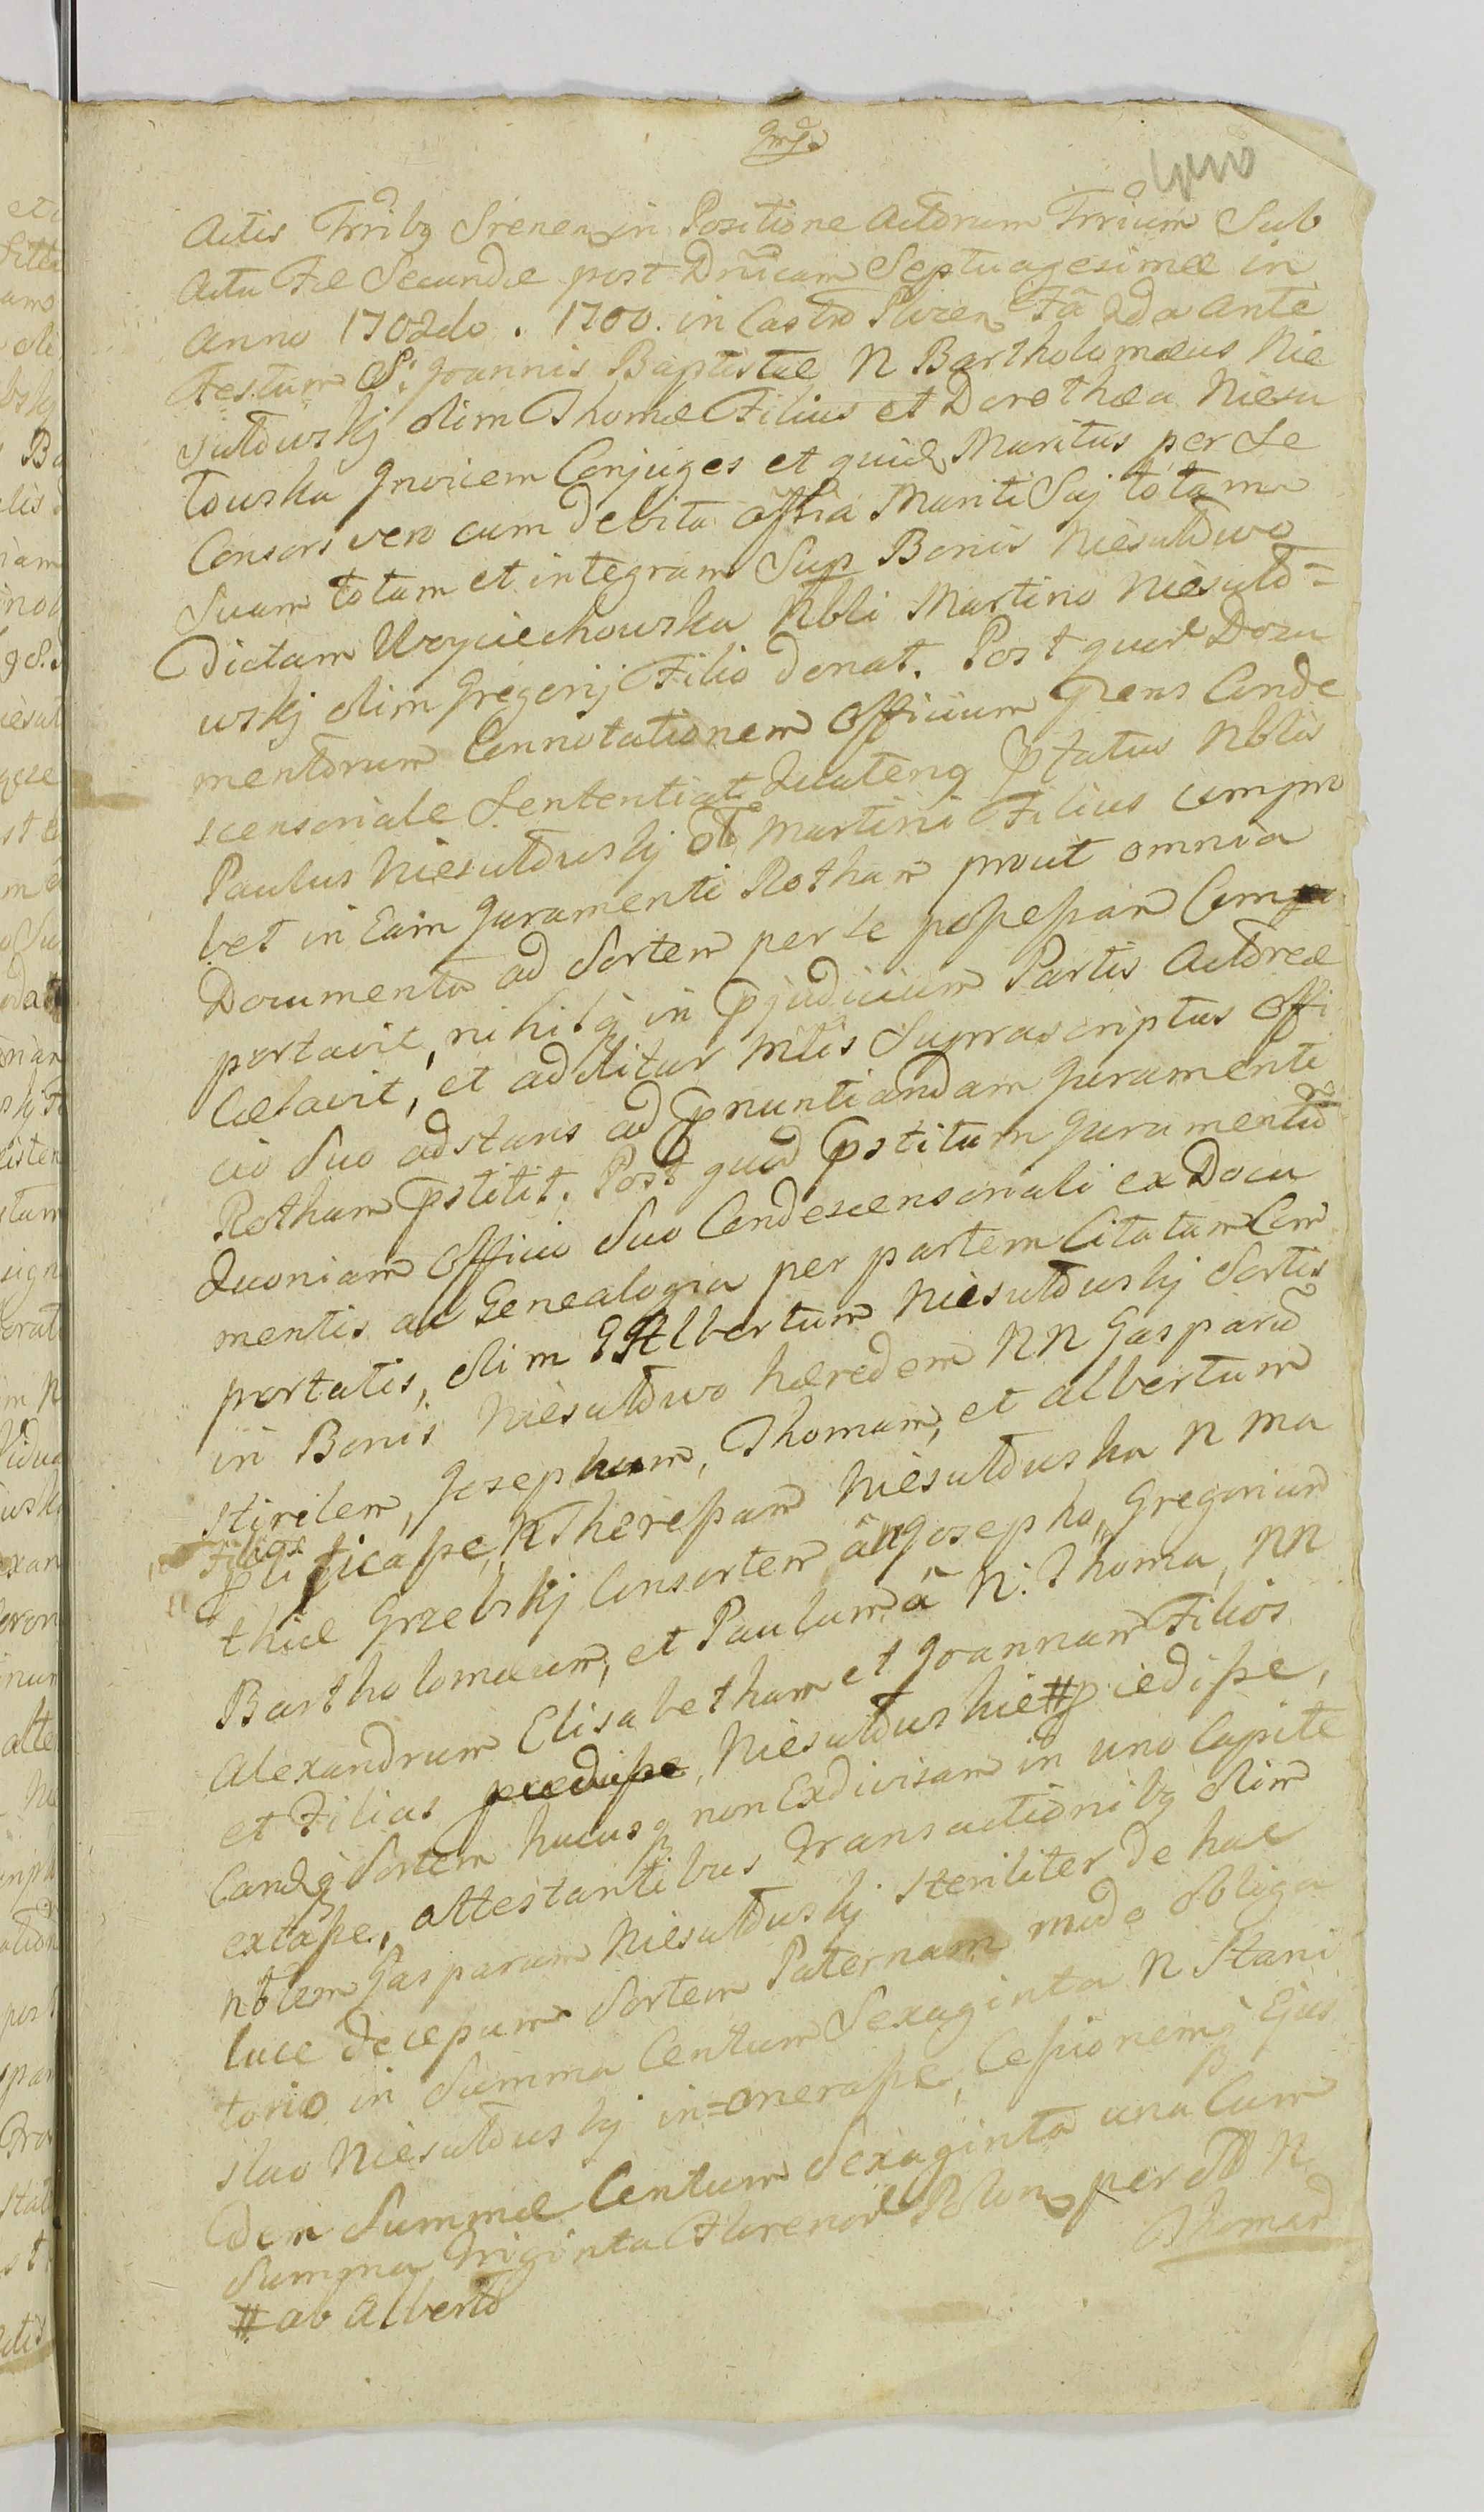 Actis Trrībq Srenen in Positione Actorum Trrium Sub
Actu Fae Secundae post Dnīcam Septuagesimae in
Anno 1702do. 1700. in Castro Plocen Fā 2da ante
Festum S: Joannis Baptistae N Bartholomaeus Nie
sułowskj olim Thomae Filius et Dorothea Niesu
łowska Jnvicem Conjuges et quid Maritus per Se
Consors vero cum debita assīa Mariti Suj totam
Suam totam et integram Sup Bonis Niesułowo
dictam Woyciechowska Nbli Martino Niesuło=
wskj olim Gregorij Filio donat. Post quor Docu
mentorum Connotationem Officium pnens Conde
scensoriale Sententiat Quatenq ptatus Nblis
Paulus Niesułowskj ol Martini Filius compro
bet in Eam Juramenti Rotham prout omnia
Documenta ad Sortem per Se possessam Com
portavit, nihilq in pjudicium Partis Actoreae
Celavit, et additur Mtis Suprascriptus Offi
cio Suo adstans ad pnuntiandam Juramenti
Rotham pstitit. Post quod pstitum Juramentū
Quoniam Officio Suo Condescensoriali ex Docu
mentis ac Genealogia per partem Citatam Com
portatis, olim G Albertum Niesułowskj Sortis
in Bonis Niesułowo haeredem NN Gasparū
Sterilem, Josephum, Thomam, et Albertum
Filios
plificasse, N Theressam Niesułowska N Ma
thiae Grzebskj Consortem, ā N Josepho, Gregorium
Bartholomaeum, et Paulum, ā N. Thoma, NN
Alexandrum Elisabetham et Joannam Filios
et Filias Niesułowskie # pcedisse,
Eandq Sortem hucusq non Exdivisam in uno Capite
extasse, attestantibus Transactionibq olim
Nblem Gasparum Niesułowskj steriliter de hac
luce decessum Sortem Paternam modo obliga
torio in Summa Centum Sexaginta N Stani
slao Niesułowskj in=onerasse, Cessionemq Ejus
dem Summae Centum Sexaginta una Cum
Summa Triginta Florenor Polon per ol N
Thomam
# ab Alberto